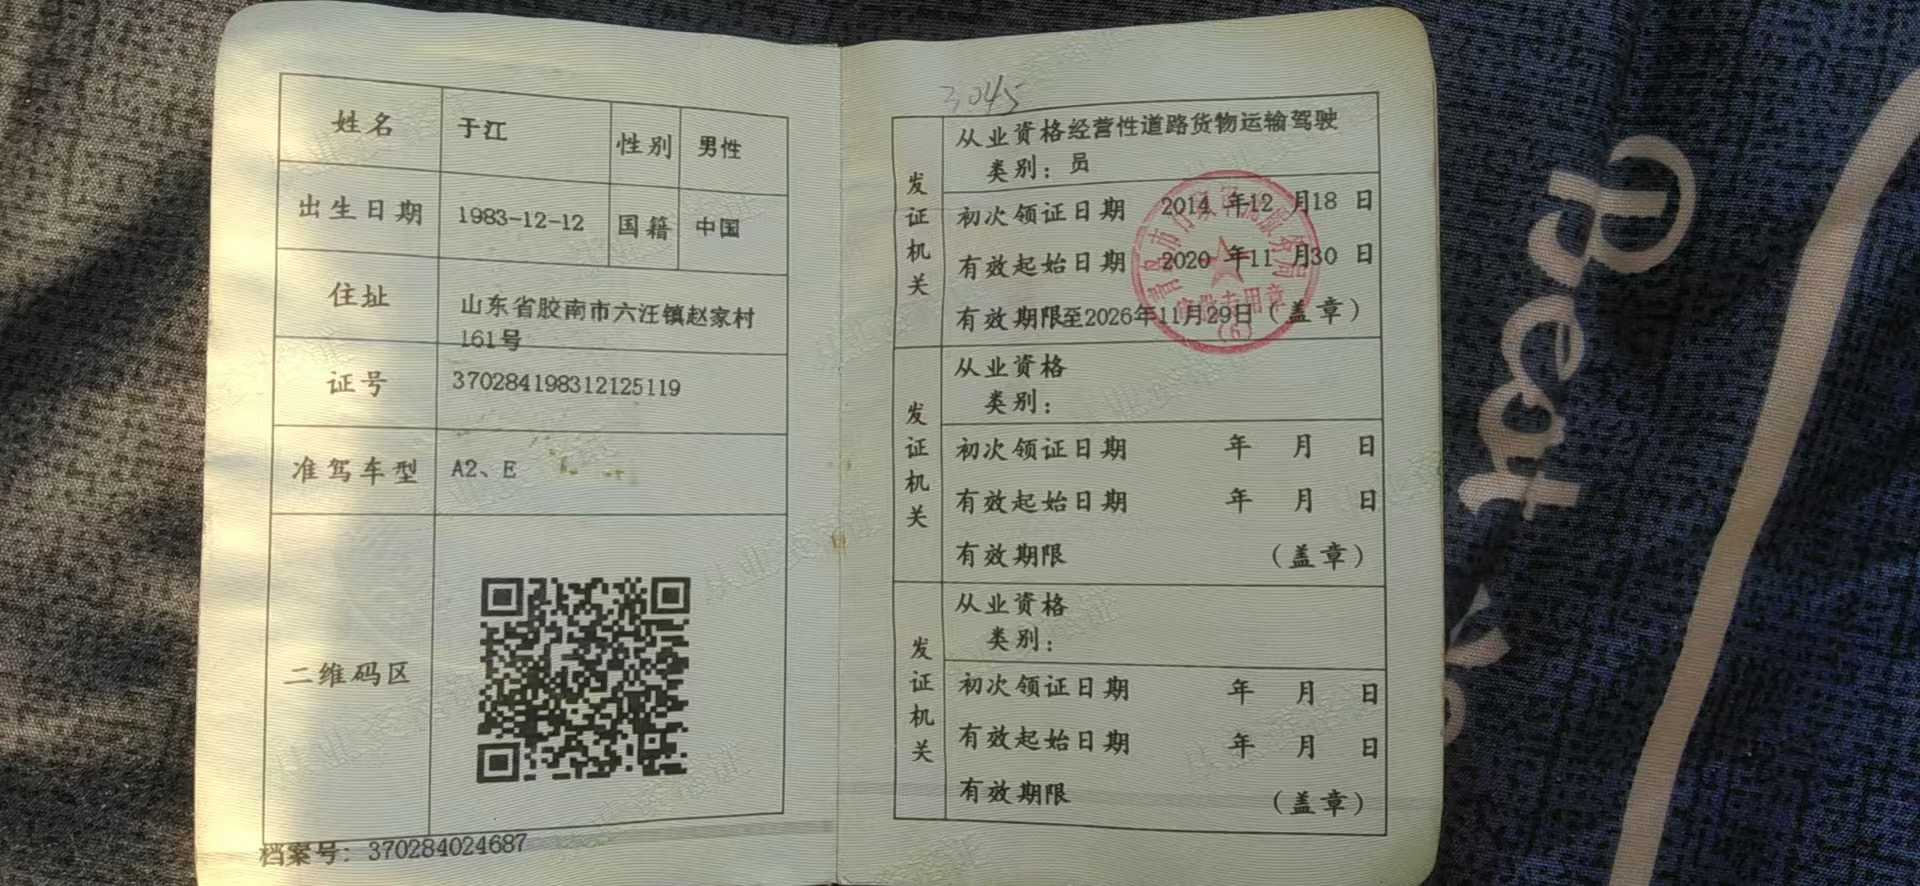 姓名 于江 性别 男性
出生日期 1983-12-12 国籍 中国
住址 山东省胶南市六汪镇赵家村
161号
证号 370284198312125119
准驾车型 A2、E
二维码区
档案号：370284024687
3045
发证机关
从业资格经营性道路货物运输驾驶
类别：员
初次领证日期 2014 年12 月18 日
有效起始日期 2020 年11 月30 日
有效期限至2026年11月29日（盖章）
(6)
发证机关
从业资格
类别：
初次领证日期 年 月 日
有效起始日期 年 月 日
有效期限 （盖章）
发证机关
从业资格
类别：
初次领证日期 年 月 日
有效起始日期 年 月 日
有效期限 （盖章）
Beat